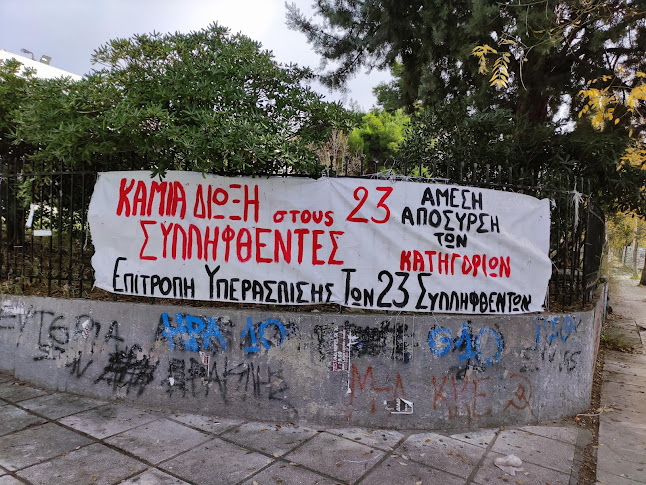 ΚΑΜΙΑ ΔΙΩΞΗ στους 23
ΣΥΛΛΗΦΘΕΝΤΕΣ
ΑΜΕΣΗ
ΑΠΟΣΥΡΣΗ
ΤΩΝ
ΚΑΤΗΓΟΡΙΩΝ
ΕΠΙΤΡΟΠΗ ΥΠΕΡΑΣΠΙΣΗΣ ΤΩΝ 23 ΣΥΛΛΗΦΘΕΝΤΩΝ
Μ-Λ ΚΚΕ